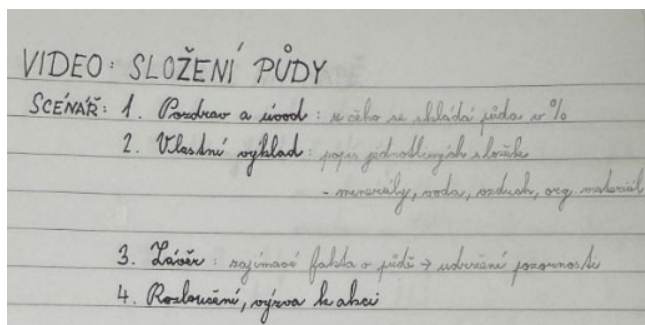 VIDEO: SLOŽENÍ PŮDY
SCÉNÁŘ: 1. Pozdrav a úvod : z čeho se skládá půda v %
2. Vlastní výklad : popis jednotlivých složek
- minerály, voda, vzduch, org. materiál
3. Závěr : zajímavé fakta o půdě → udržení pozornosti
4. Rozloučení, výzva k akci